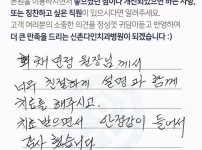 본원을 이용하시면서 좋으셨던 점이나 개선되었으면 하는 사항,
또는 칭찬하고 싶은 직원이 있으시다면 알려주세요.
고객 여러분의 소중한 의견을 정성껏 귀담아듣고 반영하여
더 큰 만족을 드리는 신촌다인치과병원이 되겠습니다 :)
원장님 께서
너무 친절하게 설명과 함께
치료를 해주시고,
치료받으면서 안정감이 들어서
감사 했습니다